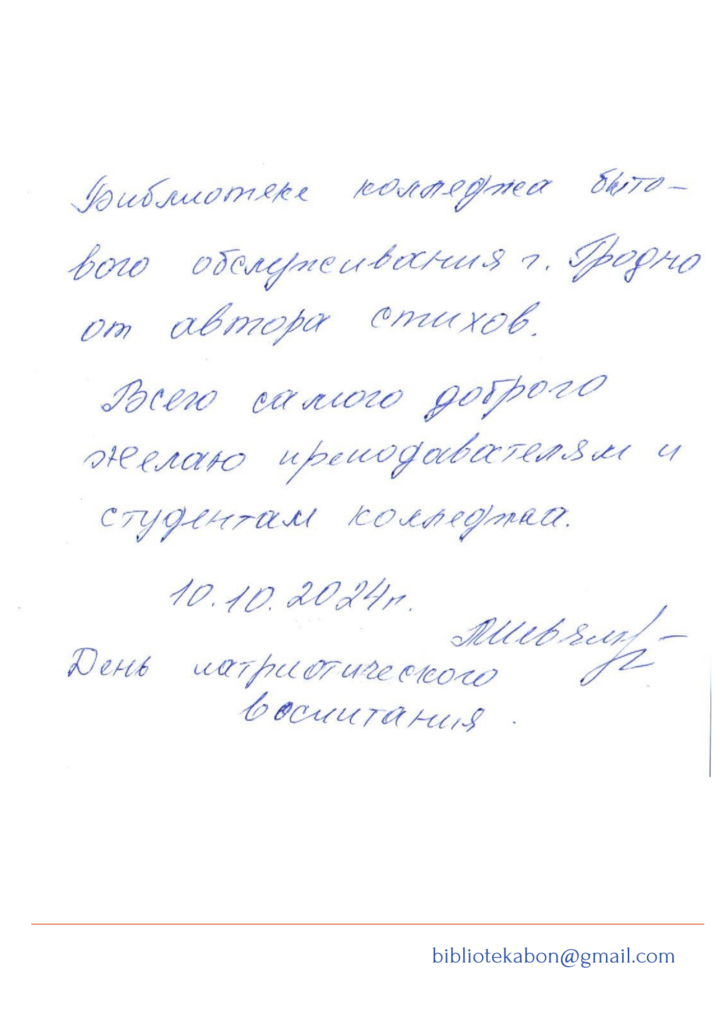 Библиотеке колледжа быто-
вого обслуживания г. Гродно
от автора стихов.
Всего самого доброго
желаю преподавателям и
студентам колледжа.
10.10.2024г.
День патриотического
воспитания.
bibliotekabon@gmail.com